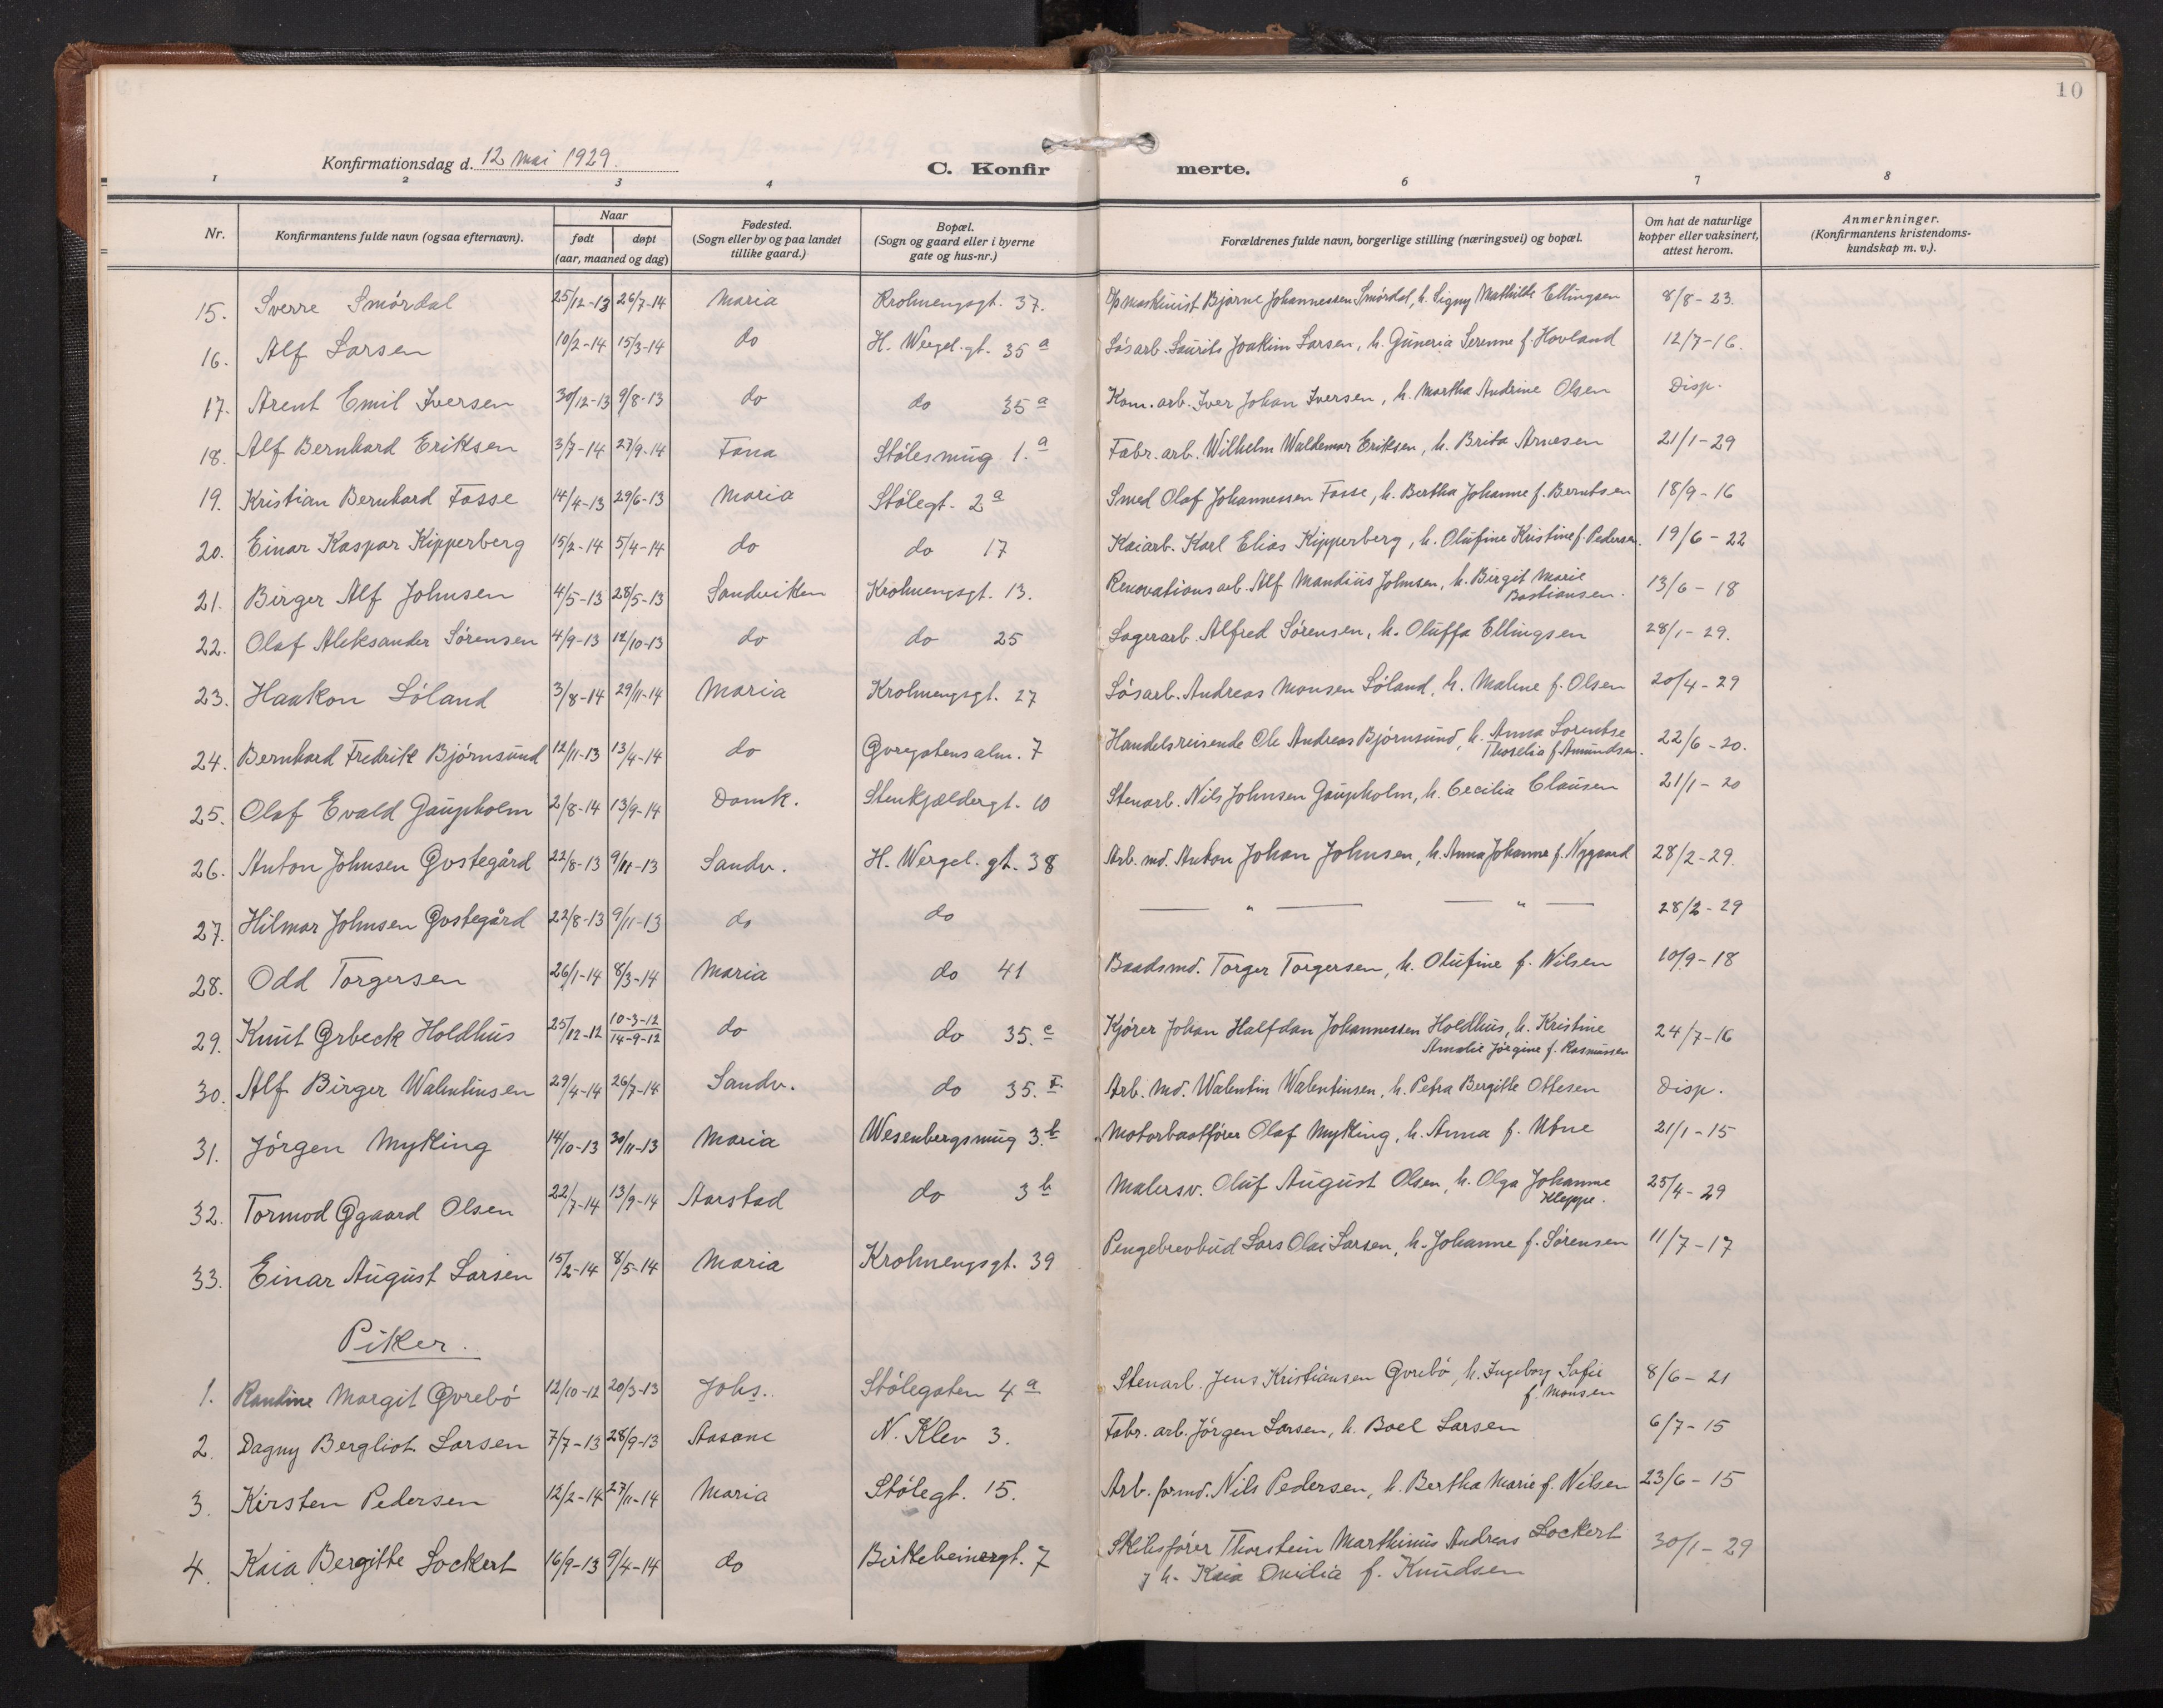 10
Konfirmationsdag d. 12 Mai 1929.
C. Konfirmerte.
1 2 3 4 6 7 8
Nr. Konfirmantens fulde navn (ogsaa efternavn). Naar født døpt (aar, maaned og dag) Fødested. (Sogn eller by og paa landet tillike gaard.) Bopæl. (Sogn og gaard eller i byerne gate og hus-nr.) Forældrenes fulde navn, borgerlige stilling (næringsvei) og bopæl. Om hat de naturlige kopper eller vaksinert, attest herom. Anmerkninger. (Konfirmantens kristendomskundskap m. v.).
15. Sverre Smørdal 25/12-13 26/7-14 Maria Krohnengsgt. 37. D/p maskinist Bjarne Johannessen Smørdal, h. Signy Mathilde Ellingsen 8/8-23.
16. Alf Larsen 10/2-14 15/3-14 do H. Wergel. gt. 35 a Løsarb. Laurits Joakim Larsen, h. Guneria Serenne f. Hovland 12/7-16.
17. Arent Emil Iversen 30/12-13 9/8-13 do do 35 a Kom. arb. Iver Johan Iversen, h. Martha Andrine Olsen Disp.
18. Alf Bernhard Eriksen 3/7-14 27/9-14 Fana Stølesmug 1. a Fabr. arb. Wilhelm Waldemar Eriksen, h. Brita Arnesen 21/1-29
19. Kristian Bernhard Fosse 14/4-13 29/6-13 Maria Stølegt. 2 a Smed Olaf Johannessen Fosse, h. Bertha Johanne f. Berntsen 18/9-16
20. Einar Kaspar Kipperberg 15/2-14 5/4-14 do do 17 Kaiarb. Karl Elias Kipperberg, h. Olufine Kristine f. Pedersen. 19/6-22
21. Birger Alf Johnsen 4/5-13 28/5-13 Sandviken Krohnengsgt. 13. Renovationsarb. Alf Mandius Johnsen, h. Birgit Marie Bastiansen. 13/6-18
22. Olaf Aleksander Sørensen 4/9-13 12/10-13 do do 25 Lagerarb. Alfred Sørensen, h. Oluffa Ellingsen 28/1-29.
23. Haakon Søland 3/8-14 29/11-14 Maria Krohnengsgt. 27 Løsarb. Andreas Monsen Søland, h. Maline f. Olsen 20/4-29
24. Bernhard Fredrik Bjørnsund 12/11-13 13/4-14 do Øvregatens alm. 7 Handelsreisende Ole Andreas Bjørnsund, h. Anna Lorentse f. Amundsen. 22/6-20.
25. Olaf Evald Gaupholm 2/8-14 13/9-14 Domk. Stenkjeldergt. 10 Stenarb. Nils Johnsen Gaupholm, h. Cecilia Clausen 21/1-20
26. Anton Johnsen Østegård 22/8-13 9/11-13 Sandv. H. Wergel. gt. 38 Arb. md. Anton Johan Johnsen, h. Anna Johanne f. Nygaard 28/2-29.
27. Hilmar Johnsen Østegård 22/8-13 9/11-13 do do — " — — " — 28/2-29
28. Odd Torgersen 26/1-14 8/3-14 Maria do 41 Baadsmd. Torger Torgersen, h. Olufine f. Nilsen 10/9-18
29. Knut Ørbeck Holdhus 25/12-12 10-3-12 14-9-12 do do 35. c Kjører Johan Halfdan Johannessen Holdhus, h. Kristine Amalie Jørgine f. Rasmussen 24/7-16
30. Alf Birger Walentinsen 29/4-14 26/7-14 Sandv. do 35. I Arb. md. Walentin Walentinsen, h. Petra Bergitte Ottesen Disp.
31. Jørgen Myking 14/10-13 30/11-13 Maria Wesenbergsmug 3. b Motorbaatfører Olaf Myking, h. Anna f. Utne 21/1-15
32. Tormod Øgaard Olsen 22/7-14 13/9-14 Aarstad do 3 b Malersv. Oluf August Olsen, h. Olga Johanne Kleppe. 25/4-29
33. Einar August Larsen 15/2-14 8/5-14 Maria Krohnengsgt. 39 Pengebrevbud Lars Olai Larsen, h. Johanne f. Sørensen 11/7-17
Piker.
1. Randine Margit Øvrebø 12/10-12 20/3-13 Johs. Stølegaten 4 a Stenarb. Jens Kristiansen Øvrebø, h. Ingeborg Sofie f. Monsen 8/6-21
2. Dagny Bergliot Larsen 7/7-13 28/9-13 Aasane N. Klev 3. Fabr. arb. Jørgen Larsen, h. Boel Larsen 6/7-15
3. Kirsten Pedersen 12/2-14 27/11-14 Maria Stølegt. 15. Arb. formd. Nils Pedersen, h. Bertha Marie f. Nilsen 23/6-15
4. Kaia Bergitte Lockert 16/9-13 9/4-14 do Birkebeinergt. 7 Skibsfører Thorstein Marthinius Andreas Lockert
h. Kaia Ovidia f. Knudsen 30/1-29